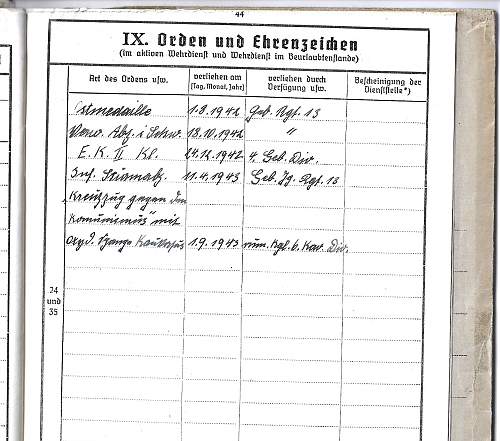 44
IX. Orden und Ehrenzeichen
(im aktiven Wehrdienst und Wehrdienst im Beurlaubtenstande)
Art des Ordens usw. verliehen am (Tag, Monat, Jahr) verliehen durch Verfügung usw. Bescheinigung der Dienststelle*)
Ostmedaille 1.8.1942 Geb. Rgt. 13
Verw. Abz. i. Schw. 18.10.1942 "
E. K. II Kl. 24.12.1942 4. Geb. Div.
Inf. Sturmabz. 11.4.1943 Geb. Jg. Rgt. 13
„Kreuzzug gegen den
Komunismus" mit
Spange Kaukasus 1.9.1943 rum. Kgl. 6. Kav. Div.
24
und
35